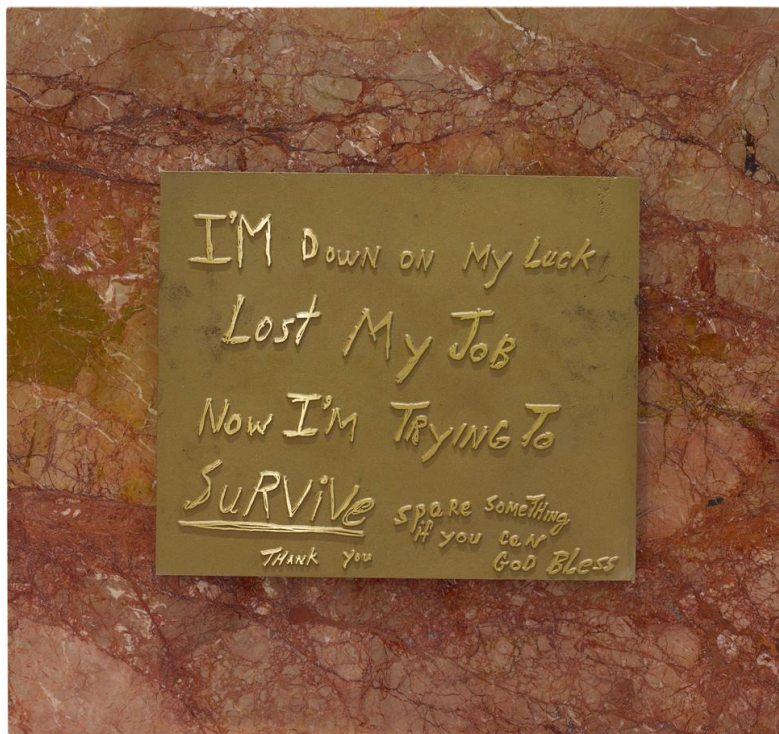 I'M DOWN ON My Luck
Lost My JoB
Now I'M TRyING To
SuRViVe
spaRe SomeTHing
if you can
THANK you
GoD BLess